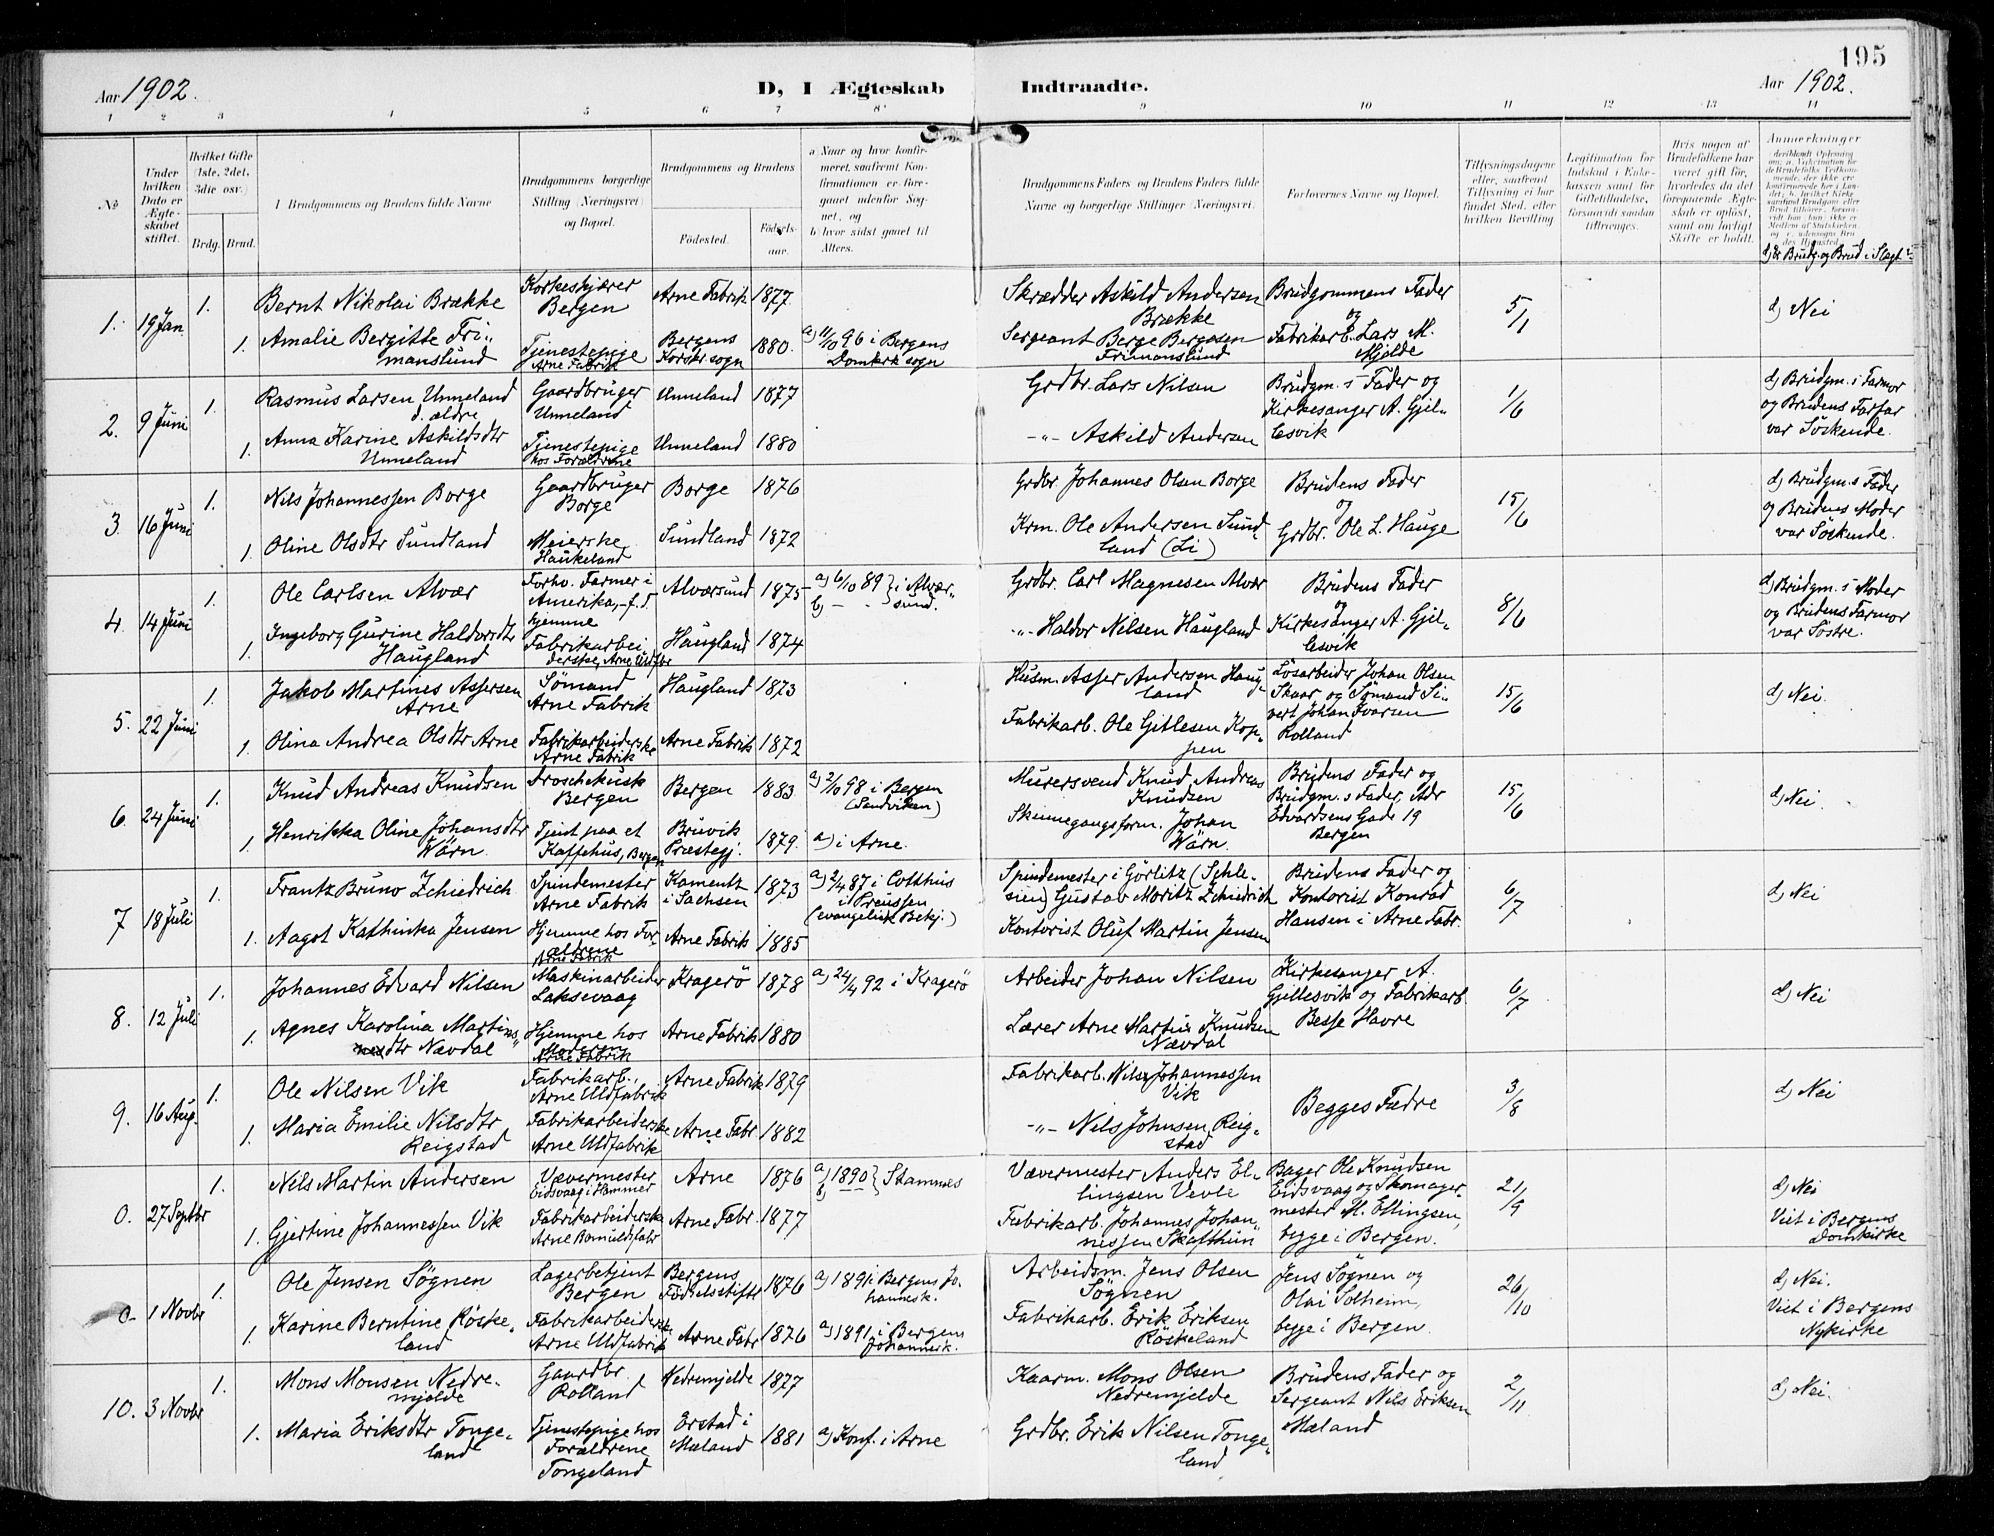 195
Aar 1902.
D, I Ægteskab Indtraadte.
Aar 1902.
1 2 3 4 5 6 7 8 9 10 11 12 13 14
№
Under hvilken Dato er Ægteskabet stiftet.
Hvilket Gifte (1ste, 2det, 3die osv.)
Brdg. Brud.
1 Brudgommens og Brudens fulde Navne
Brudgommens borgerlige Stilling (Næringsvei) og Bopæl.
Brudgommens og Brudens
Fødested.
Fødselsaar.
a Naar og hvor konfirmeret, saafremt Konfirmationen er foregaaet udenfor Sognet, og
b hvor sidst gaaet til Alters.
Brudgommens Faders og Brudens Faders fulde Navne og borgerlige Stillinger (Næringsvei).
Forlovernes Navne og Bopæl.
Tillysningsdagene eller, saafremt Tillysning ei har fundet Sted, efter hvilken Bevilling
Legitimation for Indskud i Enkekassen samt for Giftetilladelse, forsaavidt saadan tiltrænges.
Hvis nogen af Brudefolkene har været gift før, hvorledes da det foregaaende Ægteskab er opløst, samt om lovligt Skifte er holdt.
Anmerkninger
d) Er Brudg. og Brud i Slægt?
1. 19 Jan 1.
Bernt Nikolai Brække
Korkeskjærer
Bergen
Arne Fabrik 1877
Skrædder Askild Andersen
Brække
Brudgommens Fader
og
5/1
d) Nei
1. Amalie Bergitte Fri-
manslund
Tjenestepige
Arne Fabrik
Bergens
Korskr. sogn
1880.
a) 11/10 96 i Bergens
Domkirk. sogn
Sergeant Berge Bergesen
Frimanslund
Fabrikarb. Lars M.
Mjelde
2. 9 Juni 1.
Rasmus Larsen Unneland
d. ældre
Gaardbruger
Unneland
Unneland 1877
Grdbr. Lars Nilsen
Brudgm.s Fader og
Kirkesanger A. Gjil-
lesvik
1/6
d) Brudgm.s Farmor
og Brudens Farfar
var Söskende.
1. Anna Karine Askildsdtr
Unneland
Tjenestepige
hos Forældrene
Unneland 1880
-"- Askild Andersen
3. 16 Juni 1.
Nils Johannessen Borge
Gaardbruger
Borge
Borge 1876
Grdbr Johannes Olsen Borge
Brudens Fader
og
Grdbr. Ole L. Hauge
15/6
d) Brudgm.s Fader
og Brudens Moder
var Söskende.
1. Oline Olsdtr Sundland
Meierske
Haukeland
Sundland 1872
Krm. Ole Andersen Sund-
land (Li)
4. 14 Juni 1.
Ole Carlsen Alvær
Forhv. Farmer i
Amerika, f. T.
hjemme
Alværsund 1875
a) 6/10 89 } i Alvær-
b) - - sund.
Grdbr. Carl Magnesen Alvær
Brudens Fader
og
Kirkesanger A. Gjil-
lesvik
8/6
d) Brudgm.s Moder
og Brudens Farmor
var Söstre.
1. Ingeborg Gurine Haldorsdtr
Haugland
Fabrikarbei
derske, Arne Uldfbr
Haugland 1874
-"- Haldor Nilsen Haugland
5. 22 Juni 1.
Jakob Martines Assersen
Arne
Sömand
Arne Fabrik
Haugland 1873
Husm. Asser Andersen Haug-
land
Lösarbeider Johan Olsen
Skaar og Sömand Si-
vert Johan Ivarsen
Rolland
15/6
d) Nei.
1. Olina Andrea Olsdtr Arne
Fabrikarbeiderske
Arne Fabrik
Arne Fabrik 1872
Fabrikarb. Ole Gitlesen Kop-
pen
6. 24 Juni 1.
Knud Andreas Knudsen
Droschekusk
Bergen
Bergen 1883
a) 2/10 98 i Bergen
(Sandviken)
Murersvend Knud Andreas
Knudsen
Brudens Fader og
Brudgm.s Fader, Adr
Edvardsens Gade 19
Bergen
15/6
d) Nei.
1. Henrikka Oline Johansdtr
Wörn
Tjent paa et
Kaffehus, Bergen
Bruvik
Præstegj.
1879.
a) i Arne.
Skinnegangsform. Johan
Wörn.
7 18 Juli 1.
Frantz Bruno Zchiedrich
Spindemester
Arne Fabrik
Kamentz
i Sachsen
1873
a) 2/4 87 i Cotthus
i Preussen
(evangelisk Bekj.)
Spindemester i Görlitz (Schle-
sien) Gustav Moritz Zchiedrich
Brudens Fader og
Kontorist Konrad
Hansen i Arne Fabr.
6/7
d) Nei
1. Aagot Kathinka Jensen
Hjemme hos For-
ældrene
Arne Fabrik
Arne Fabrik 1885
Kontorist Oluf Martin Jensen
8. 12 Juli 1.
Johannes Edvard Nilsen
Maskinarbeider
Laksevaag
Kragerö 1878
a) 24/4 92 i Kragerö
Arbeider Johan Nilsen
Kirkesanger A.
Gjillesvik og Fabrikarb.
Besse Havre
6/7
d) Nei
1. Agnes Karolina Martins-
dtr Nævdal
Hjemme hos
Moderen
Arne Fabrik
Arne Fabrik 1880
Lærer Arne Martin Knudsen
Nævdal
9. 16 Aug. 1.
Ole Nilsen Vik
Fabrikarb.,
Arne Uldfabrik
Arne Fabrik 1879
Fabrikarb. Nils Johannessen
Vik
Begges Fædre
3/8
d) Nei
1. Maria Emilie Nilsdtr
Reigstad
Fabrikarbeiderske
Arne Uldfabrik
Arne Fabr 1882
-"- Nils Johnsen Reig-
stad
0. 27 Septbr 1.
Nils Martin Andersen
Vævermester
Eidsvaag i Hammer
Arne 1876
a) 1890 } Stamnes
b) —
Vævermester Anders El-
lingsen Vevle
Bager Ole Knudsen
Eidsvaag og Skomager-
mester M. Ellingsen,
begge i Bergen.
21/9
d) Nei
Viet i Bergens
Domkirke
1. Gjertine Johannessen Vik
Fabrikarbeiderske
Arne Bomuldsfabr
Arne Fabr. 1877
Fabrikarb. Johannes Johan-
nessen Skafthun
0. 1 Novbr 1.
Ole Jensen Sögnen
Lagerbetjent
Bergen
Bergens
Födselsstifte
1876
a) 1891 i Bergens Jo-
hannesk.
Arbeidsm. Jens Olsen
Sögnen
Jens Sögnen og
Olai Solheim,
begge i Bergen.
26/10
d) Nei.
Viet i Bergens
Nykirke
1. Karine Berntine Röske-
land
Fabrikarbeiderske
Arne Uldfabrik
Arne Fabr 1876
a) 1891 i Bergens
Johannesk.
Fabrikarb. Erik Eriksen
Röskeland
10. 3 Novbr 1.
Mons Monsen Nedre-
mjelde
Gaardbr.
Rolland
Nedremjelde 1877
Kaarm. Mons Olsen
Nedremjelde
Brudens Fader og
Sergeant Nils Eriksen
Mæland
2/11
d) Nei.
1. Maria Eriksdtr Tonge-
land
Tjenestepige hos
Forældrene
Tongeland
Erstad i
Mæland
1881
a) Konf. i Arne
Grdbr. Erik Nilsen Tonge-
land